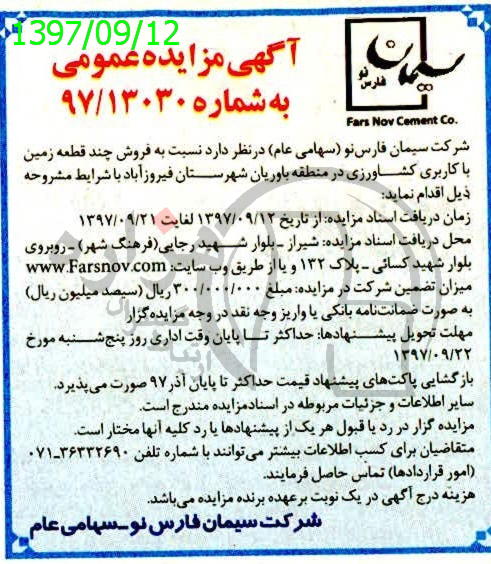 1397/09/12
سیمان
فارس نو
Fars Nov Cement Co.
آگهی مزایده عمومی
به شماره ۹۷/۱۳۰۳۰
شرکت سیمان فارس نو (سهامی عام) در نظر دارد نسبت به فروش چند قطعه زمین
با کاربری کشاورزی در منطقه باوریان شهرستان فیروزآباد با شرایط مشروحه
ذیل اقدام نماید:
زمان دریافت اسناد مزایده: از تاریخ ۱۳۹۷/۰۹/۱۲ لغایت ۱۳۹۷/۰۹/۲۱
محل دریافت اسناد مزایده: شیراز - بلوار شهید رجایی (فرهنگ شهر) - روبروی
بلوار شهید کسائی - پلاک ۱۳۲ و یا از طریق وب سایت: www.Farsnov.com
میزان تضمین شرکت در مزایده: مبلغ ۳۰۰/۰۰۰/۰۰۰ ریال (سیصد میلیون ریال)
به صورت ضمانت‌نامه بانکی یا واریز وجه نقد در وجه مزایده‌گزار
مهلت تحویل پیشنهادها: حداکثر تا پایان وقت اداری روز پنج‌شنبه مورخ
۱۳۹۷/۰۹/۲۲
بازگشایی پاکت‌های پیشنهاد قیمت حداکثر تا پایان آذر ۹۷ صورت می‌پذیرد.
سایر اطلاعات و جزئیات مربوطه در اسناد مزایده مندرج است.
مزایده گزار در رد یا قبول هر یک از پیشنهادها یا رد کلیه آنها مختار است.
متقاضیان برای کسب اطلاعات بیشتر می‌توانند با شماره تلفن ۳۶۳۳۲۶۹۰-۰۷۱
(امور قراردادها) تماس حاصل فرمایند.
هزینه درج آگهی در یک نوبت بر عهده برنده مزایده می‌باشد.
شرکت سیمان فارس نو - سهامی عام